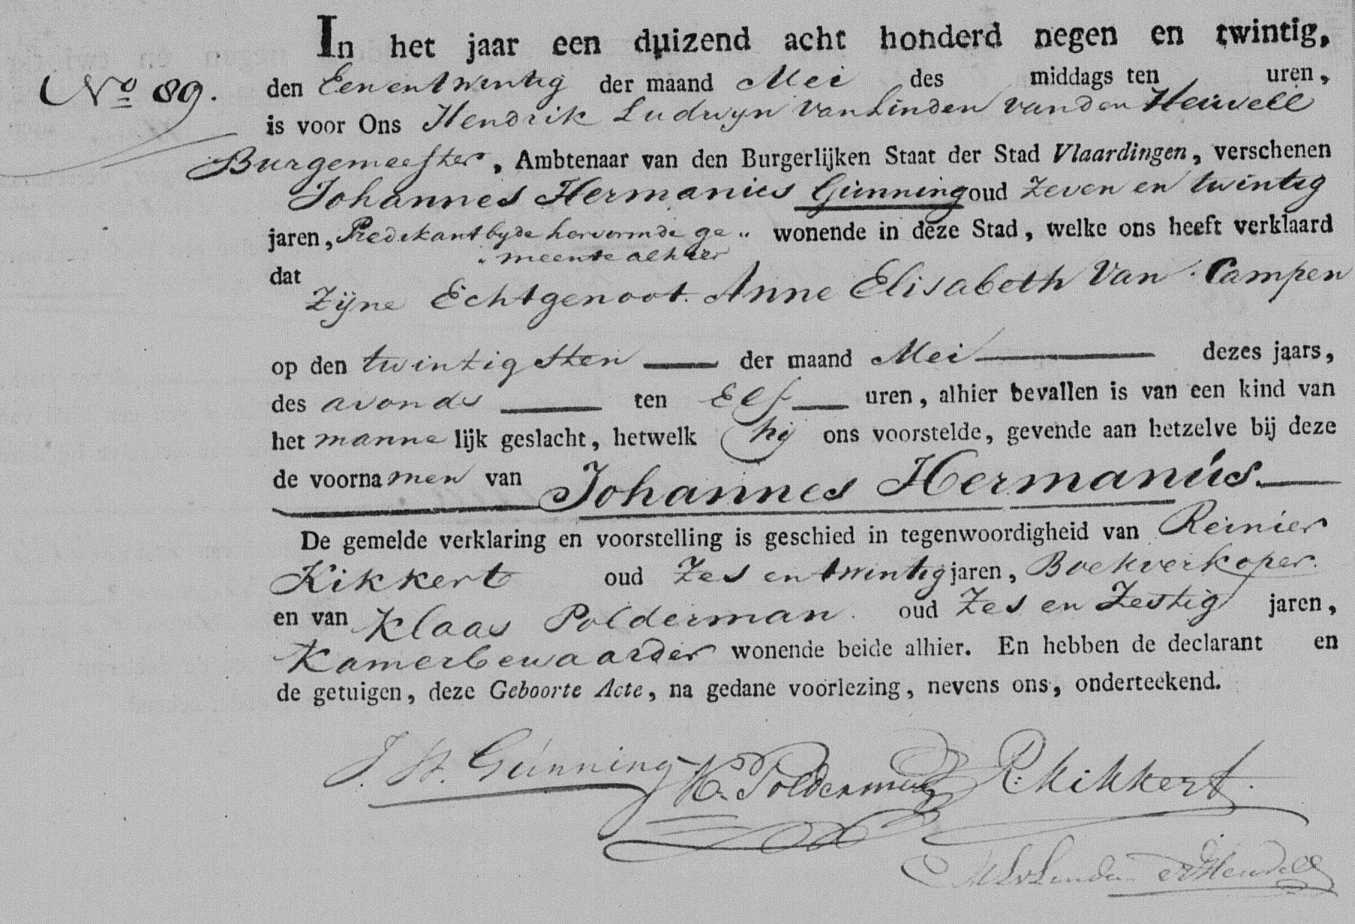 In het jaar een duizend acht honderd negen en twintig,
No 89.
den Eenentwintig der maand Mei des middags ten uren,
is voor Ons Hendrik Ludwijn Van Linden Van den Heuvell
Burgemeester, Ambtenaar van den Burgerlijken Staat der Stad Vlaardingen, verschenen
Johannes Hermanus Gunning oud Zeven en twintig
jaren, Predikant by de hervormde ge„ wonende in deze Stad, welke ons heeft verklaard
„meente alhier
dat
Zijne Echtgenoot. Anne Elisabeth Van Campen
op den twintigsten der maand Mei dezes jaars,
des avonds ten Elf uren, alhier bevallen is van een kind van
het mannelijk geslacht, hetwelk hij ons voorstelde, gevende aan hetzelve bij deze
de voornamen van Johannes Hermanús.
De gemelde verklaring en voorstelling is geschied in tegenwoordigheid van Reinier
Kikkert oud Zes en twintig jaren, Boekverkoper.
en van Klaas Polderman oud Zes en Zestig jaren,
Kamerbewaarder wonende beide alhier. En hebben de declarant en
de getuigen, deze Geboorte Acte, na gedane voorlezing, nevens ons, onderteekend.
J. H. Gúnning K. Polderman R. Kikkert.
HL v Linden vd Heuvell